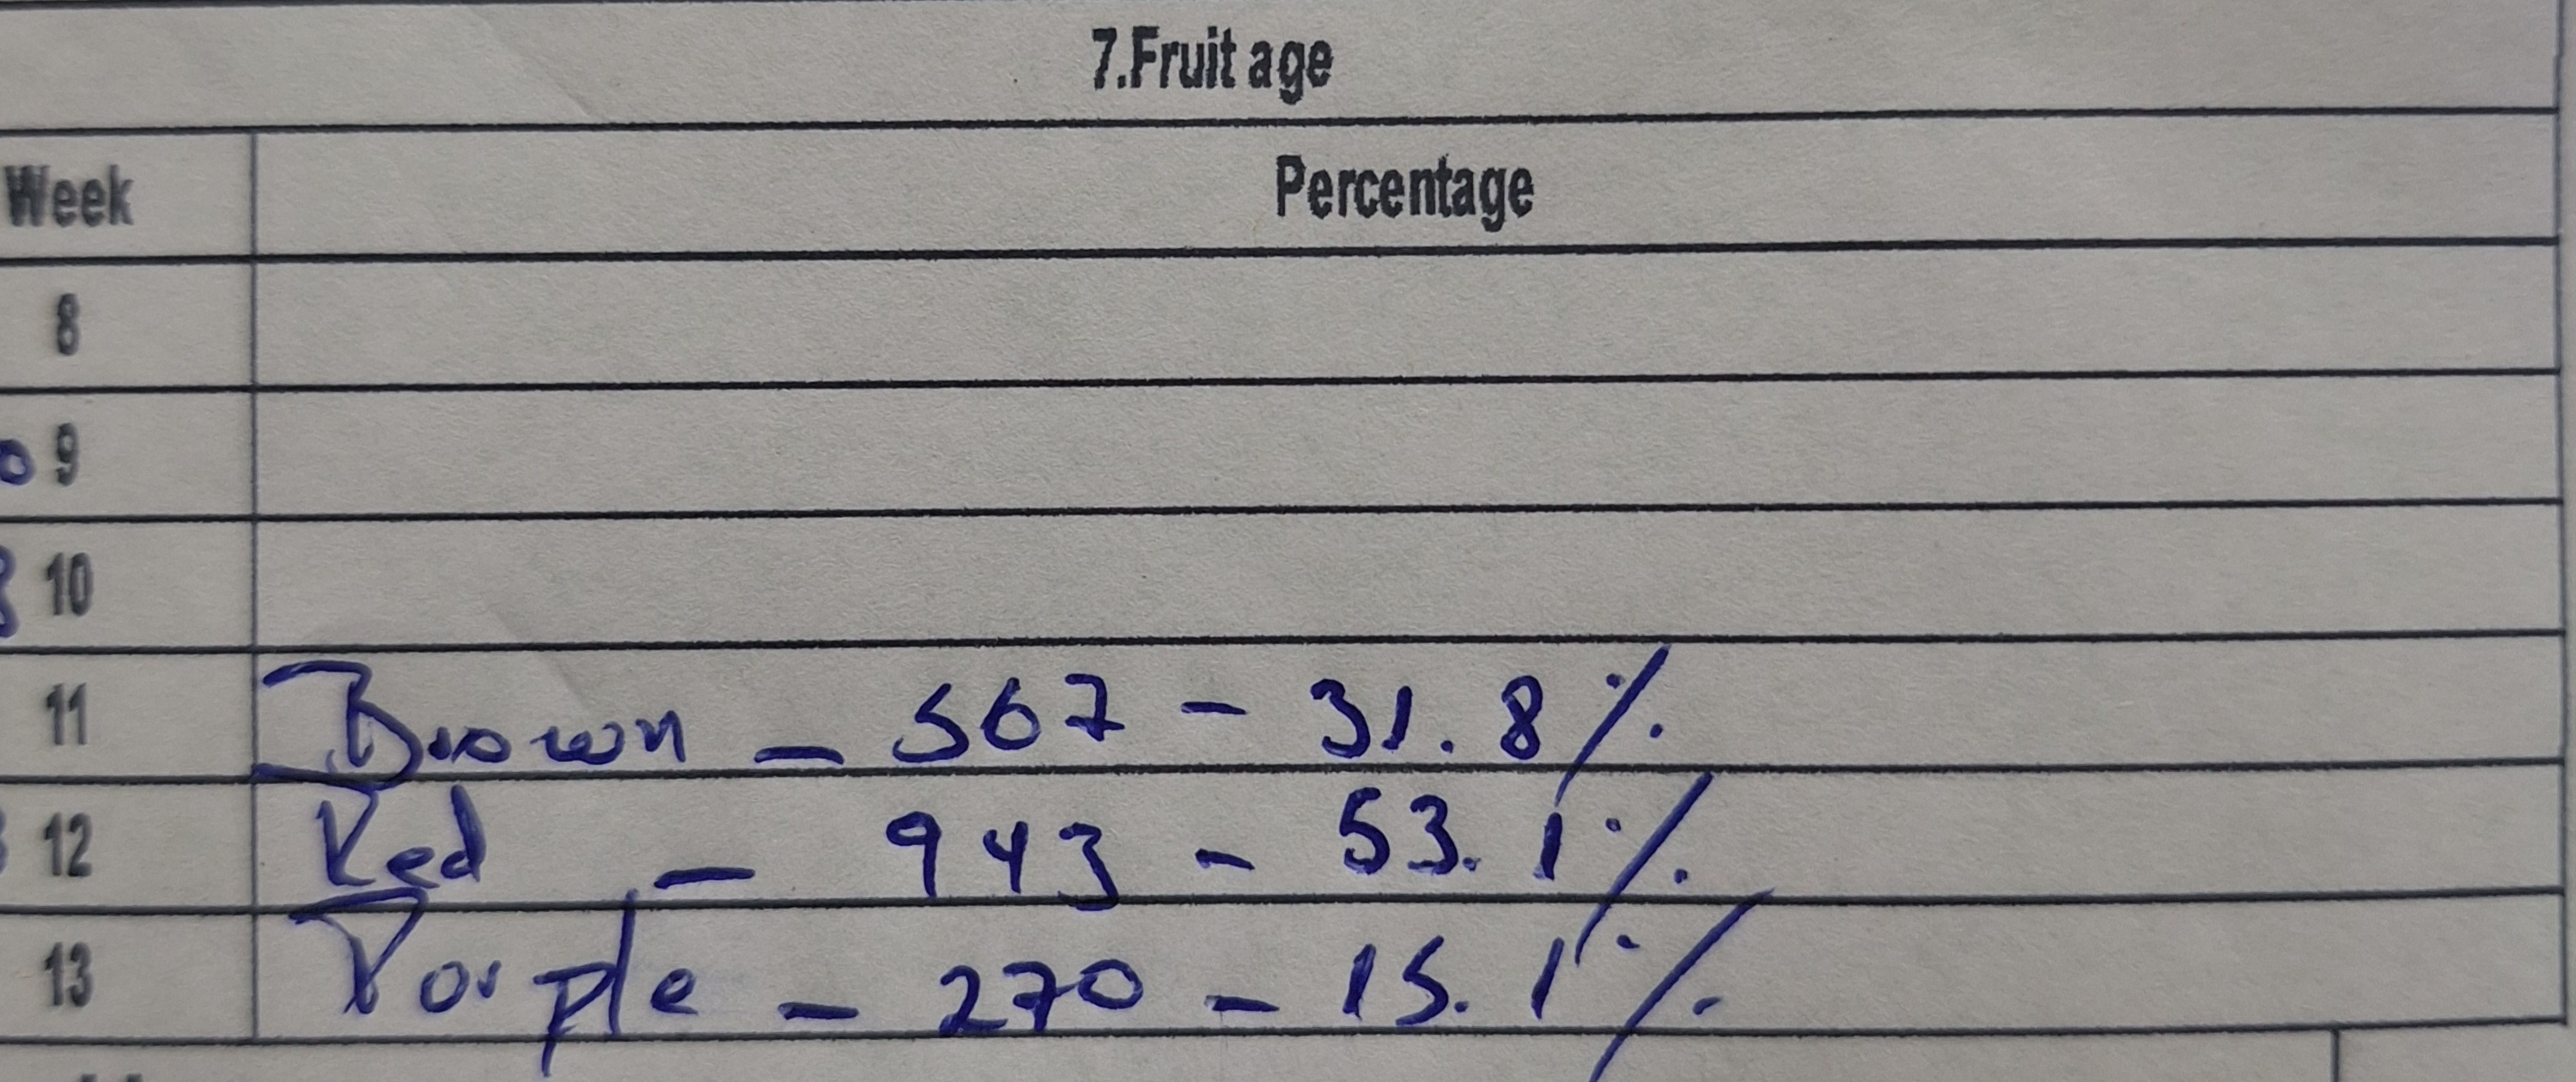 7.Fruit age
Week Percentage
8
9
10
11 Brown - 567 - 31.8%
12 Red - 943 - 53.1%
13 Porple - 270 - 15.1%